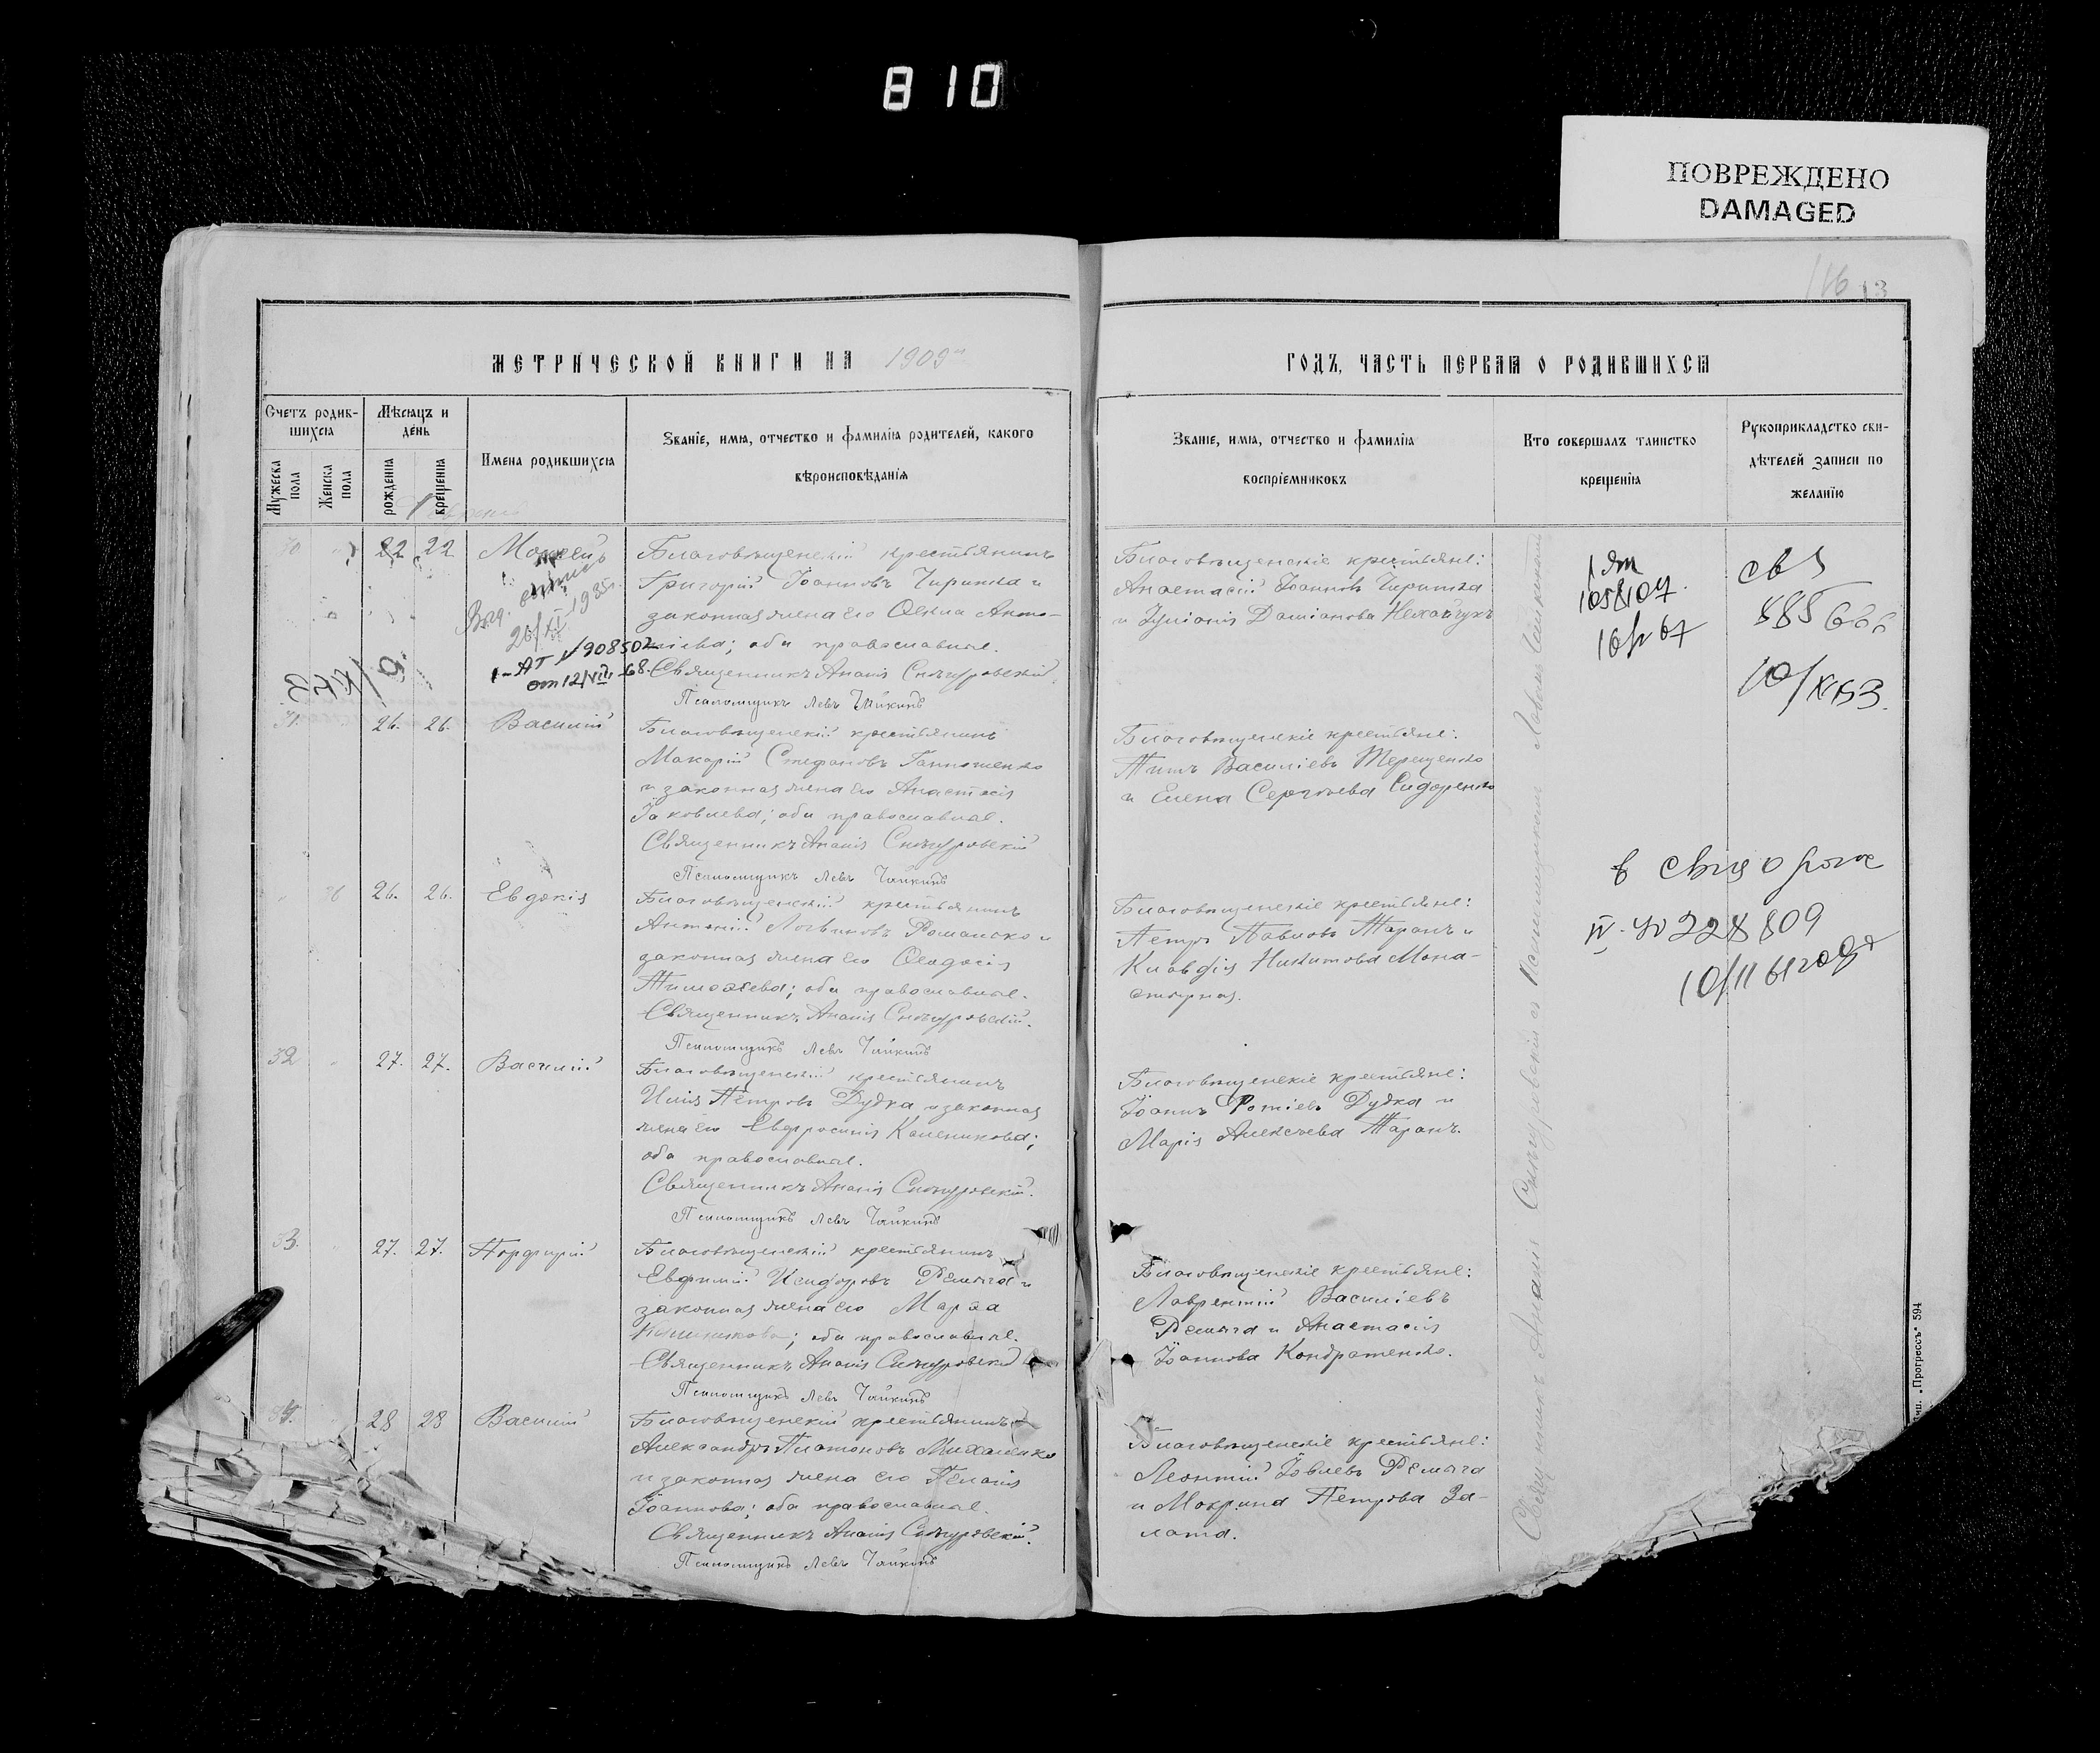 810
ПОВРЕЖДЕНО
DAMAGED
116
13
МЕТРИЧЕСКОЙ КНИГИ НА 1909
ГОДЪ, ЧАСТЬ ПЕРВАЯ О РОДИВШИХСЯ
Счетъ родив-
шихся
Мужеска
пола
Женска
пола
Мѣсяцъ и
день
рожденія
крещенія
Имена родившихся
Званіе, имя, отчество и фамилія родителей, какого
вѣроисповѣданія
Званіе, имя, отчество и фамилія
воспріемниковъ
Кто совершалъ таинство
крещенія
Рукоприкладство сви-
дѣтелей записи по
желанію
30 22 22
Благовѣщенскій крестьянинъ
Григорій Іоанновъ Чиринка и
законная жена его Анто-
ніева; оба православные.
Священникъ Ананія Снѣгуровскій
Псаломщикъ Левъ Чайкинъ
Благовѣщенскіе крестьяне:
Анастасій Іоанновъ Чиринка
и Іуліанія Даміанова Нехайчукъ
Выд.
26/XI 1935г.
I-АТ №908502
от 12/VIII-68.
1058107
885666
10/КВЗ.
31. 26. 26. Василій
Благовѣщенскій крестьянинъ
Макарій Стефановъ
и законная жена его Анастасія
Іаковлева; оба православные.
Священникъ Ананія Снѣгуровскій
Псаломщикъ Левъ Чайкинъ
Благовѣщенскіе крестьяне:
Титъ Василіевъ Терещенко
и Елена Сергѣева Сидоренко
26. 26. Евдокія
Благовѣщенскій крестьянинъ
Антоній Логвиновъ Романско и
законная жена его Ѳеодосія
Тимоѳеева; оба православные.
Священникъ Ананія Снѣгуровскій.
Псаломщикъ Левъ Чайкинъ
Благовѣщенскіе крестьяне:
Петръ Павловъ Таранъ и
Клавдія Никитова Мона-
стырная.
в свид о рож
IV-
228809
10/II 61 года
32 27. 27. Василій
Благовѣщенскій крестьянинъ
Илія Петровъ Дудка и законная
жена его Евфросинія Калиникова;
оба православные.
Священникъ Ананія Снѣгуровскій.
Псаломщикъ Левъ Чайкинъ
Благовѣщенскіе крестьяне:
Іоаннъ Дудка и
Марія Алексѣева Таранъ.
33. 27. 27. Порфирій
Благовѣщенскій крестьянинъ
Евфимій Исидоровъ Ремыга и
законная жена его Марѳа
оба православные.
Священникъ Ананія Снѣгуровскій
Псаломщикъ Левъ Чайкинъ
Благовѣщенскіе крестьяне:
Лаврентій Василіевъ
Ремыга и Анастасія
Іоаннова Кондратенко.
34. 28 28 Василій
Благовѣщенскій крестьянинъ
Александръ Платоновъ Михаленко
и законная жена его Пелагія
Іоаннова; оба православные.
Священникъ Ананія Снѣгуровскій.
Псаломщикъ Левъ Чайкинъ
Благовѣщенскіе крестьяне:
Леонтій Іовлевъ Ремыга
и Макрина Петрова За-
лата.
Священникъ Ананія Снѣгуровскій съ Псаломщикомъ Львомъ Чайкинымъ
Тип. „Прогрессъ“ 594